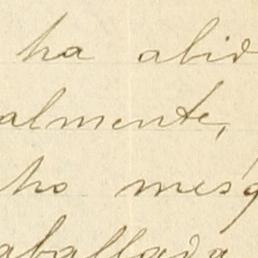 ha abid
almente,
ho mesq
aballada